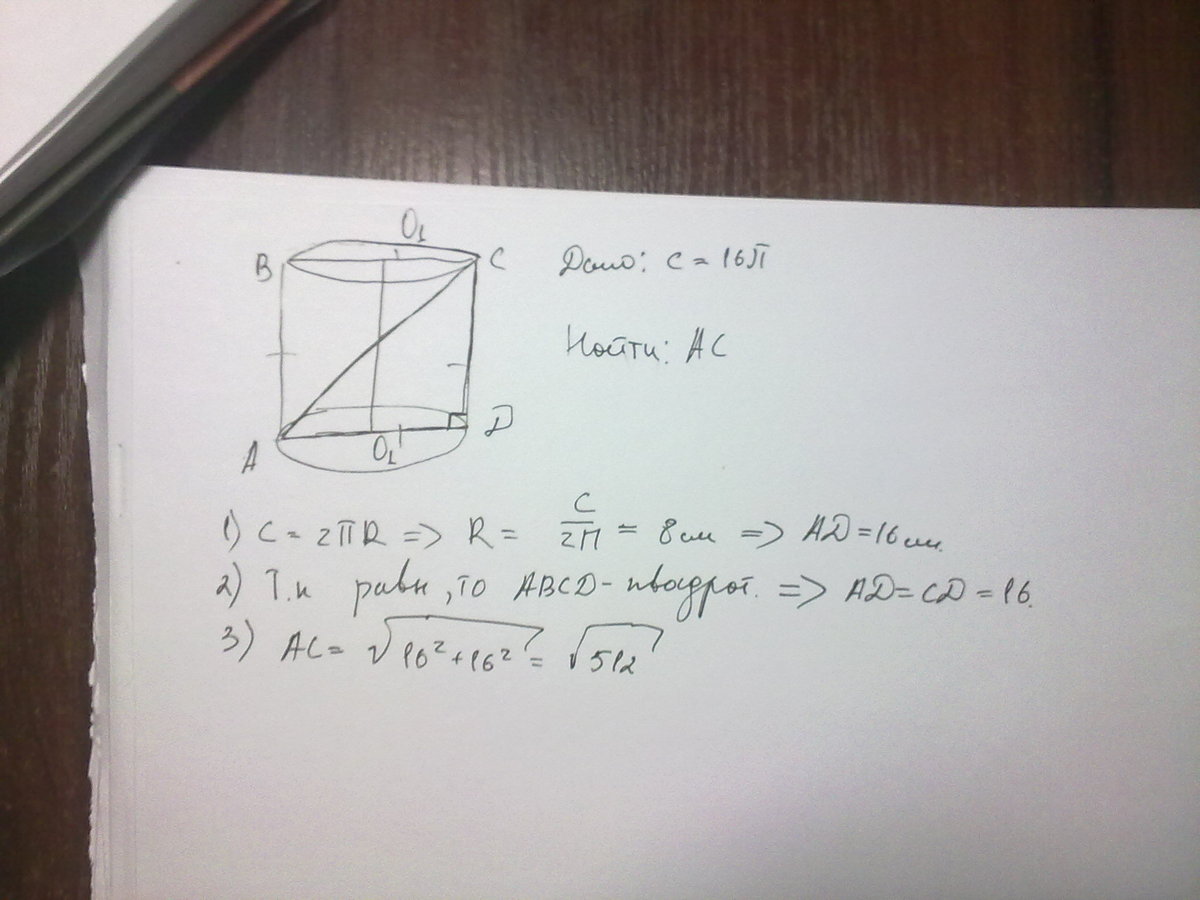 O₁
B
C
Дано: C = 16π
Найти: AC
A
O₁
D
1) C = 2πR => R = C/2π = 8 см => AD = 16 см.
2) Т.к равн, то ABCD - квадрат. => AD = CD = 16.
3) AC = √(16² + 16²) = √512